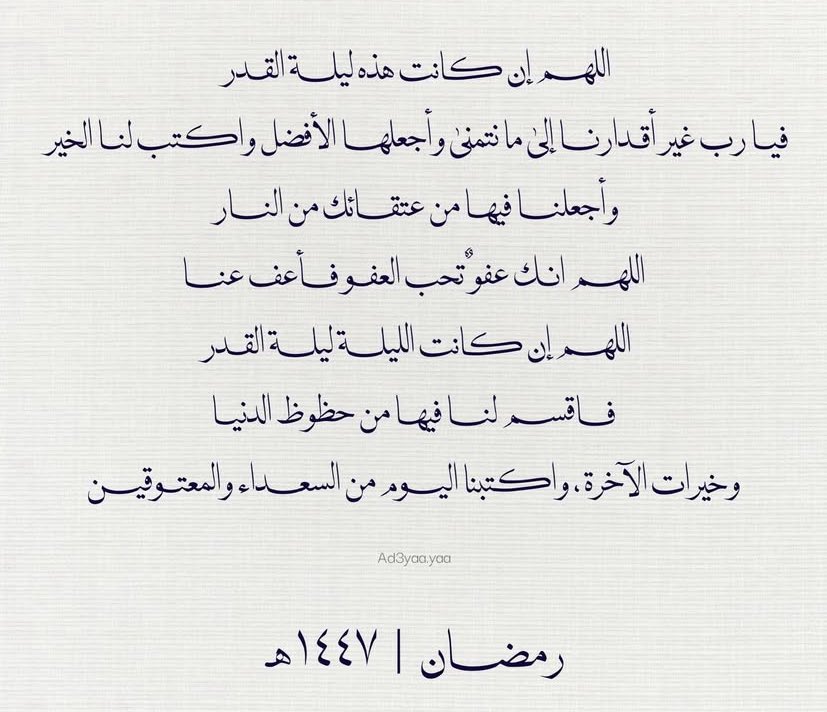 اللهم إن كانت هذه ليلة القدر
فيا رب غير أقدارنا إلىٰ ما نتمنىٰ وأجعلها الأفضل واكتب لنا الخير
وأجعلنا فيها من عتقائك من النار
اللهم انك عفوٌ تحب العفو فأعف عنا
اللهم إن كانت الليلة ليلة القدر
فاقسم لنا فيها من حظوظ الدنيا
وخيرات الآخرة، واكتبنا اليوم من السعداء والمعتوقين
Ad3yaa.yaa
رمضان | ١٤٤٧هـ